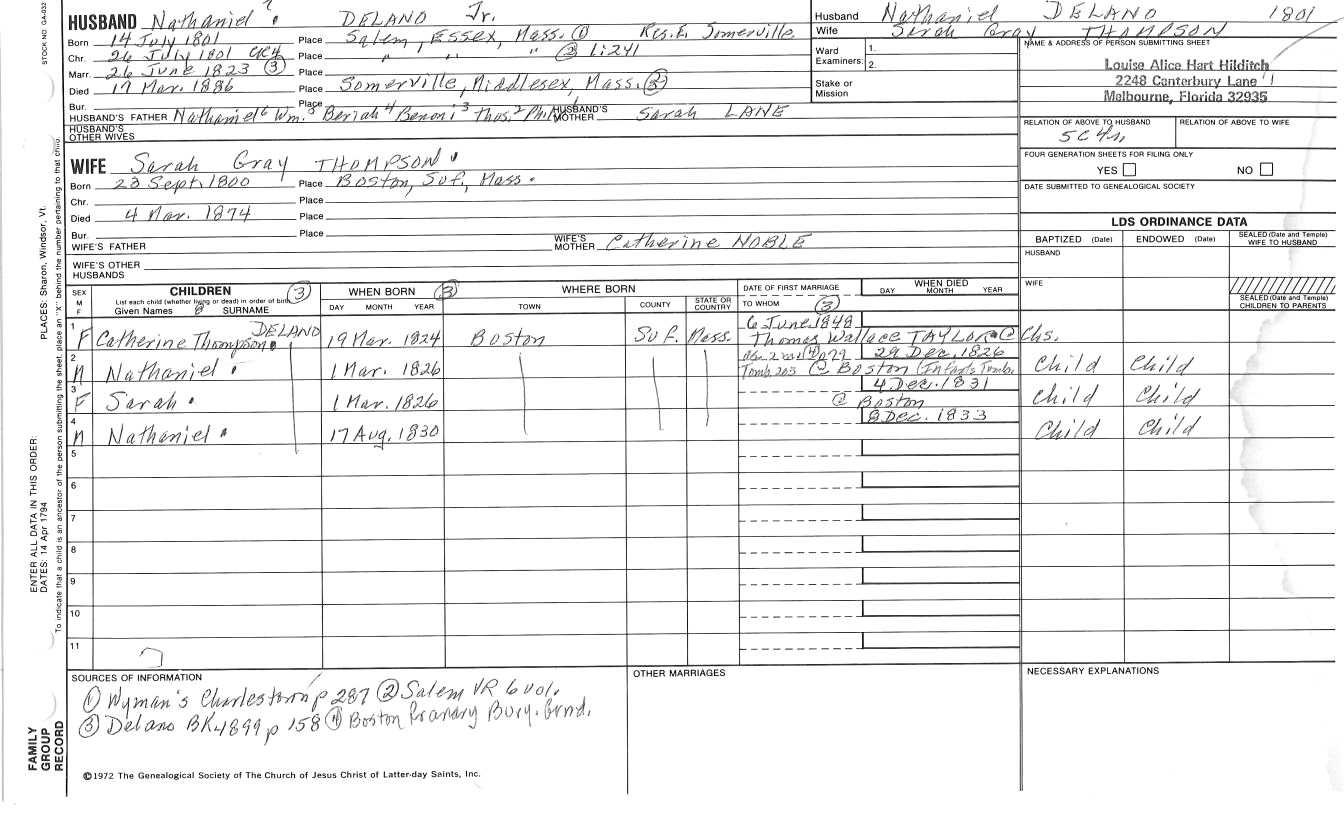 HUSBAND Nathaniel DELANO Jr.
Born 14 July 1801 Place Salem, Essex, Mass. ① Res. E. Somerville
Chr. 26 July 1801 Place " " " ② 1:241
Marr. 26 June 1823 ③ Place
Died 17 Mar. 1886 Place Somerville, Middlesex, Mass. ③
Bur. Place
HUSBAND'S FATHER Nathaniel⁶ Wm.⁵ Beriah⁴ Benoni³ Thos.² HUSBAND'S MOTHER Sarah LANE
HUSBAND'S OTHER WIVES
WIFE Sarah Gray THOMPSON
Born 23 Sept. 1800 Place Boston, Suf., Mass.
Chr. Place
Died 4 Mar. 1874 Place
Bur. Place
WIFE'S FATHER WIFE'S MOTHER Catherine NOBLE
WIFE'S OTHER HUSBANDS
Husband Nathaniel DELANO 1801
Wife Sarah Gray THOMPSON
Ward 1.
Examiners: 2.
Stake or
Mission
NAME & ADDRESS OF PERSON SUBMITTING SHEET
Louise Alice Hart Hilditch
2248 Canterbury Lane
Melbourne, Florida 32935
RELATION OF ABOVE TO HUSBAND RELATION OF ABOVE TO WIFE
5C4r
FOUR GENERATION SHEETS FOR FILING ONLY
YES NO
DATE SUBMITTED TO GENEALOGICAL SOCIETY
LDS ORDINANCE DATA
BAPTIZED (Date) ENDOWED (Date) SEALED (Date and Temple) WIFE TO HUSBAND
HUSBAND
WIFE
SEALED (Date and Temple) CHILDREN TO PARENTS
SEX M F CHILDREN ③ WHEN BORN ③ WHERE BORN DATE OF FIRST MARRIAGE WHEN DIED
List each child (whether living or dead) in order of birth
Given Names SURNAME DAY MONTH YEAR TOWN COUNTY STATE OR COUNTRY TO WHOM ③ DAY MONTH YEAR
1 F Catherine Thompson DELANO 19 Mar. 1824 Boston Suf. Mass. 6 June 1848
Thomas Wallace TAYLOR @ Chs.
2 M Nathaniel 1 Mar. 1826 29 Dec. 1826 Child Child
Tomb 203 @ Boston (Infants Tomb.
3 F Sarah 1 Mar. 1826 4 Dec. 1831 Child Child
@ Boston
4 M Nathaniel 17 Aug. 1830 8 Dec. 1833 Child Child
5
6
7
8
9
10
11
SOURCES OF INFORMATION
① Wyman's Charlestown p 287 ② Salem VR 6 vol.
③ Delano BK 1899 p 158 ④ Boston Granary Bury. Grnd.
OTHER MARRIAGES
NECESSARY EXPLANATIONS
©1972 The Genealogical Society of The Church of Jesus Christ of Latter-day Saints, Inc.
STOCK NO. GA-033
PLACES: Sharon, Windsor, Vt.
ENTER ALL DATA IN THIS ORDER:
DATES: 14 Apr 1794
To indicate that a child is an ancestor of the person submitting the sheet, place an "X" behind the number pertaining to that child.
FAMILY
GROUP
RECORD